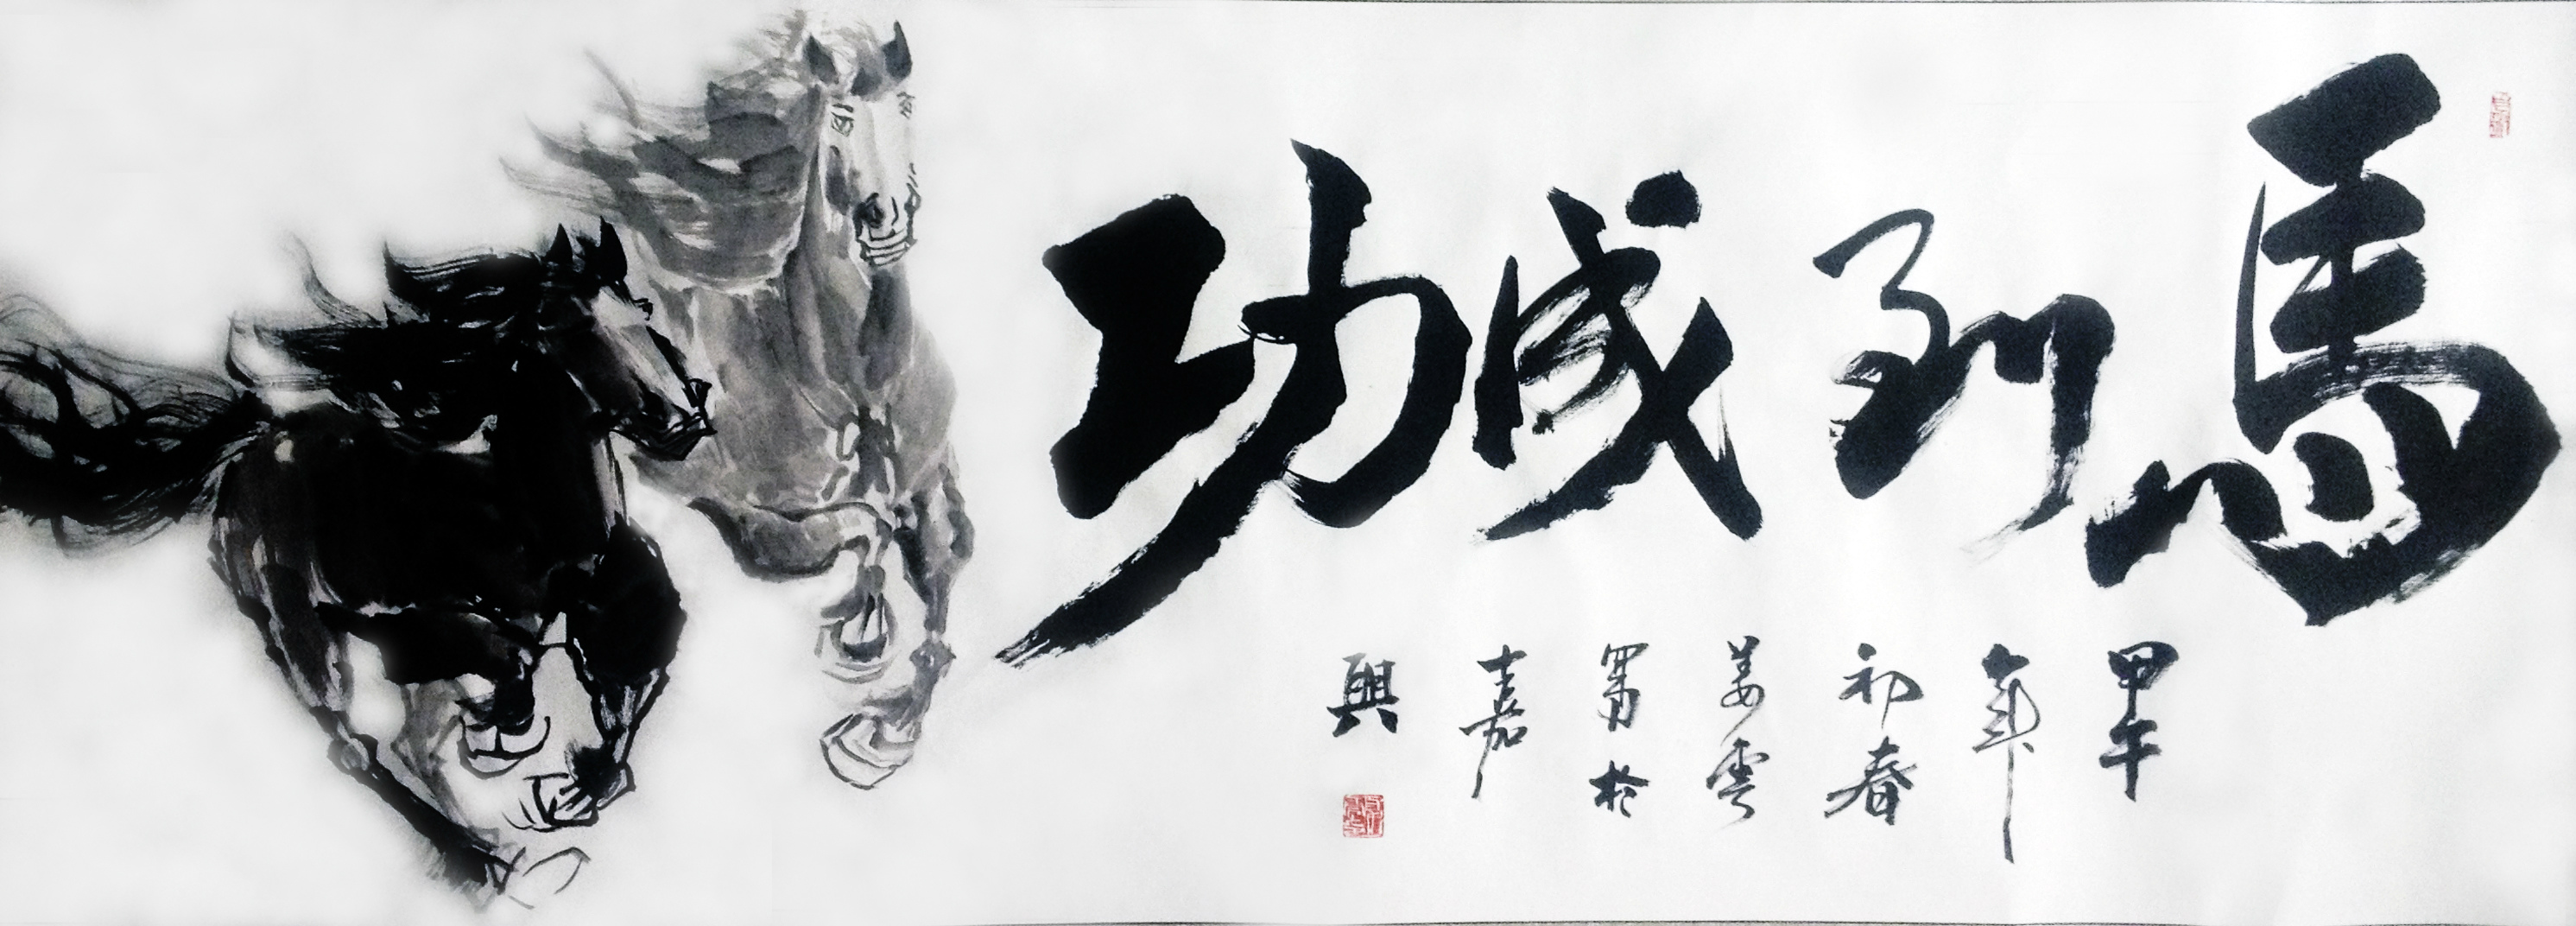 馬到成功
甲午
年
初春
姜雲
書於
嘉
興